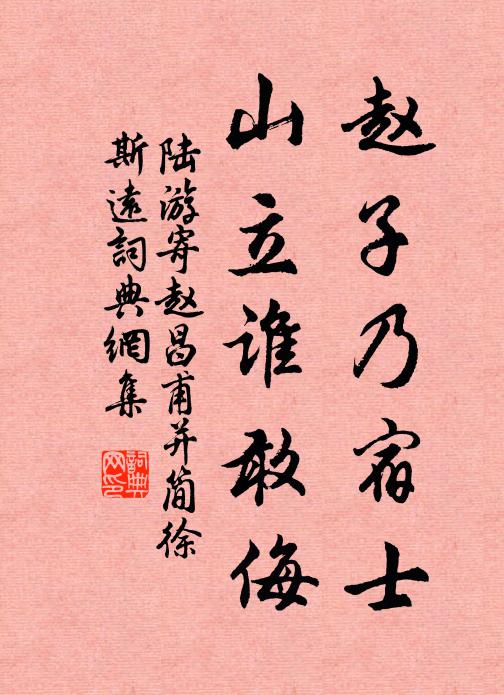 赵子乃宿士
山立谁敢侮
陆游寄赵昌甫并简徐
斯遠詞典網集
詞典网印